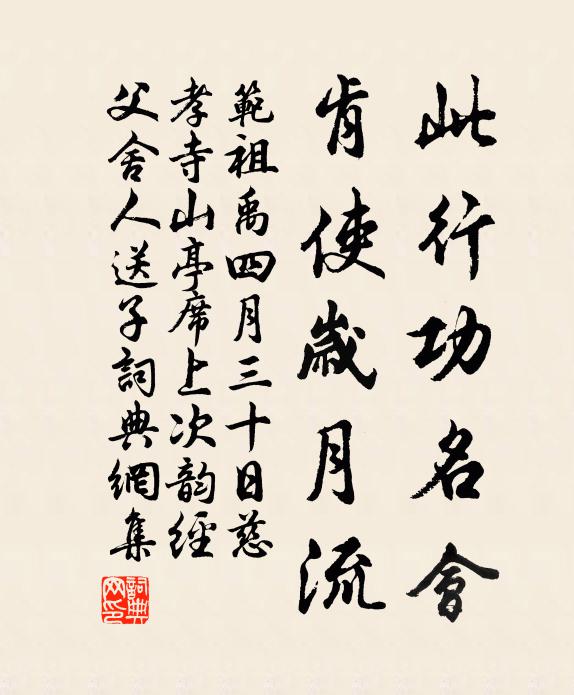 此行功名會
肯使歲月流
範祖禹四月三十日慈
孝寺山亭席上次韵經
父舍人送子詞典網集
詞典網印